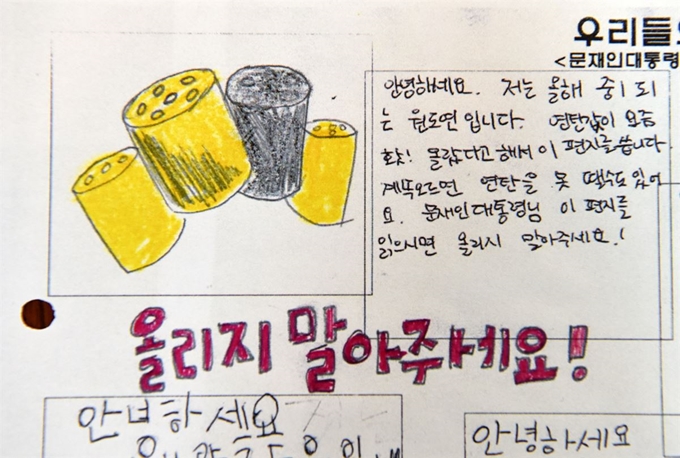 우리들의
<문재인대통령
안녕하세요. 저는 올해 중1 되
는 원도연입니다. 연탄값이 요즘
확! 올랐다고해서 이 편지를 씁니다.
계속오르면 연탄을 못 땔수도있어
요. 문재인대통령님 이 편지를
읽으시면 올리지 말아주세요!
올리지 말아주세요!
안녕하세요
안녕하세요